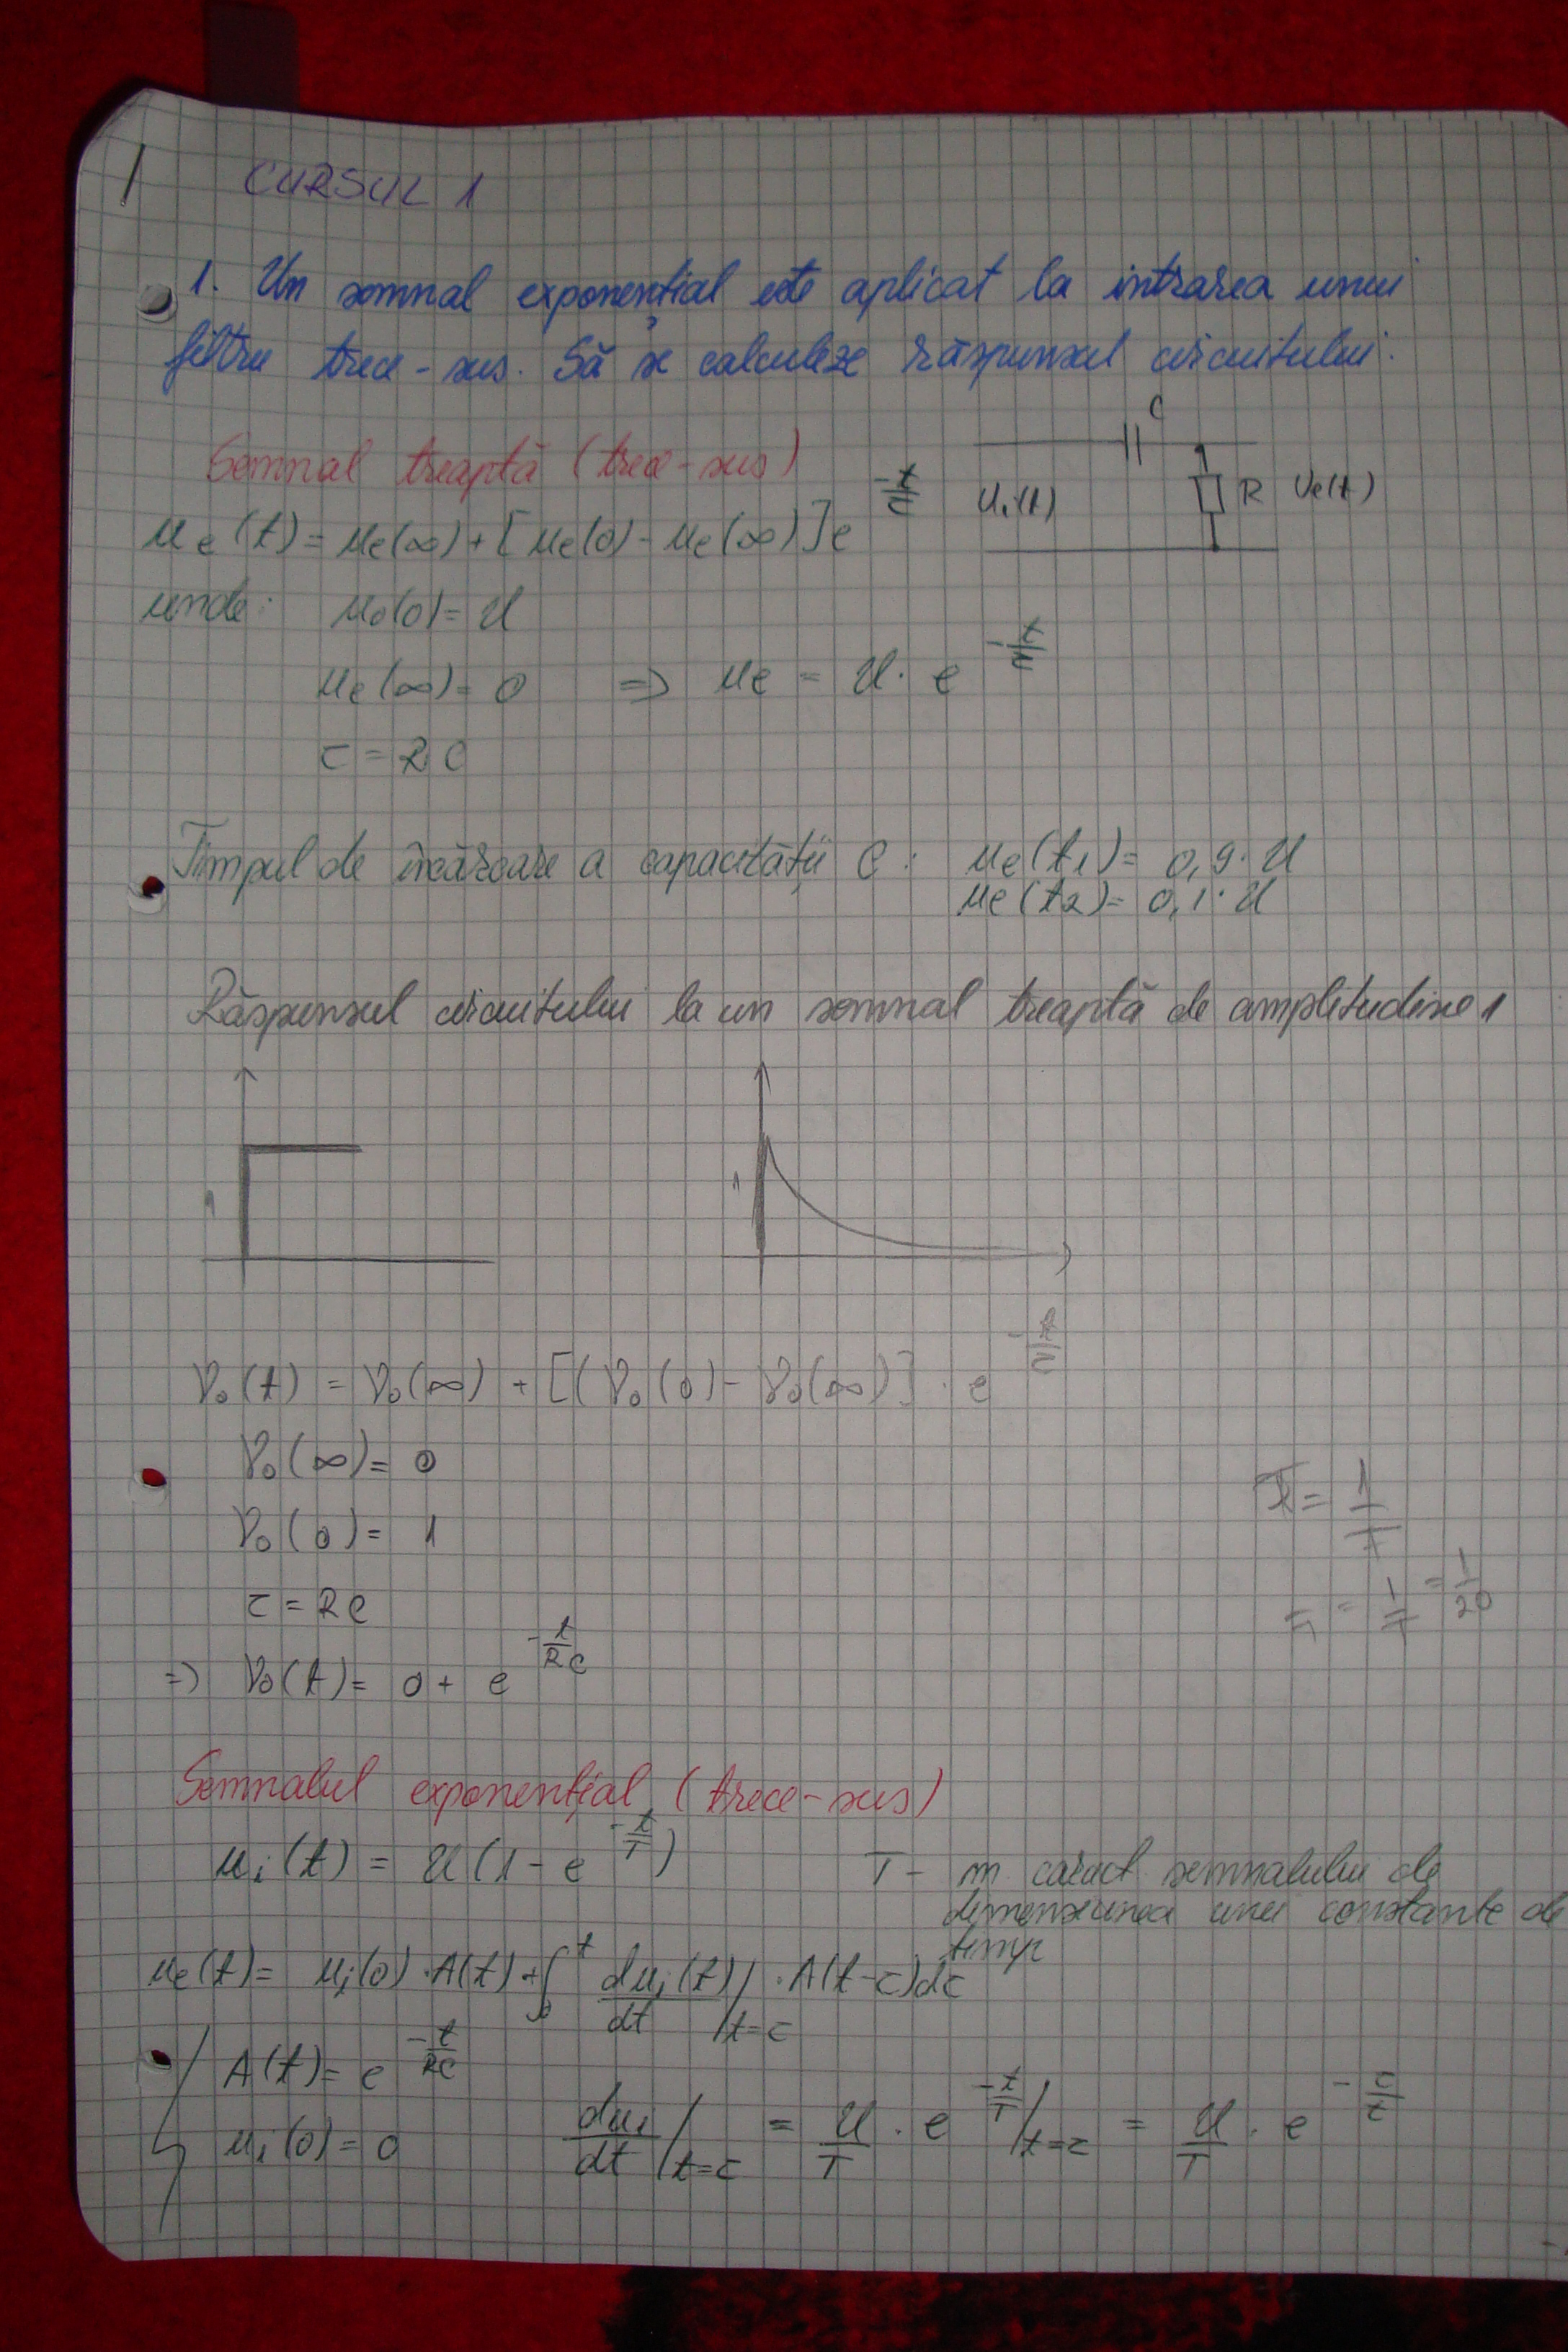 1
CURSUL 1
1. Un semnal exponențial este aplicat la intrarea unui
filtru trece-sus. Să se calculeze răspunsul circuitului.
Semnal treaptă (trece-sus)
C
Ui(t)
R Ue(t)
ue(t) = ue(∞) + [ue(0) - ue(∞)]e^(-t/τ)
unde: ue(0) = U
ue(∞) = 0 => ue = U · e^(-t/τ)
τ = RC
Timpul de încărcare a capacității C: ue(t1) = 0,9·U
ue(t2) = 0,1·U
Răspunsul circuitului la un semnal treaptă de amplitudine 1
1
1
V0(t) = V0(∞) + [(V0(0) - V0(∞)] · e^(-t/τ)
V0(∞) = 0
V0(0) = 1
τ = RC
= 1/T = 1/20
=> V0(t) = 0 + e^(-t/RC)
Semnalul exponențial (trece-sus)
ui(t) = U(1 - e^(-t/T))
T - m caract. semnalului de
dimensiunea unei constante de
timp
ue(t) = ui(0)·A(t) + ∫₀^t dui(t)/dt /t=τ · A(t-τ)dτ
A(t) = e^(-t/RC)
ui(0) = 0
dui/dt /t=τ = U/T · e^(-t/T) /t=τ = U/T · e^(-τ/τ)